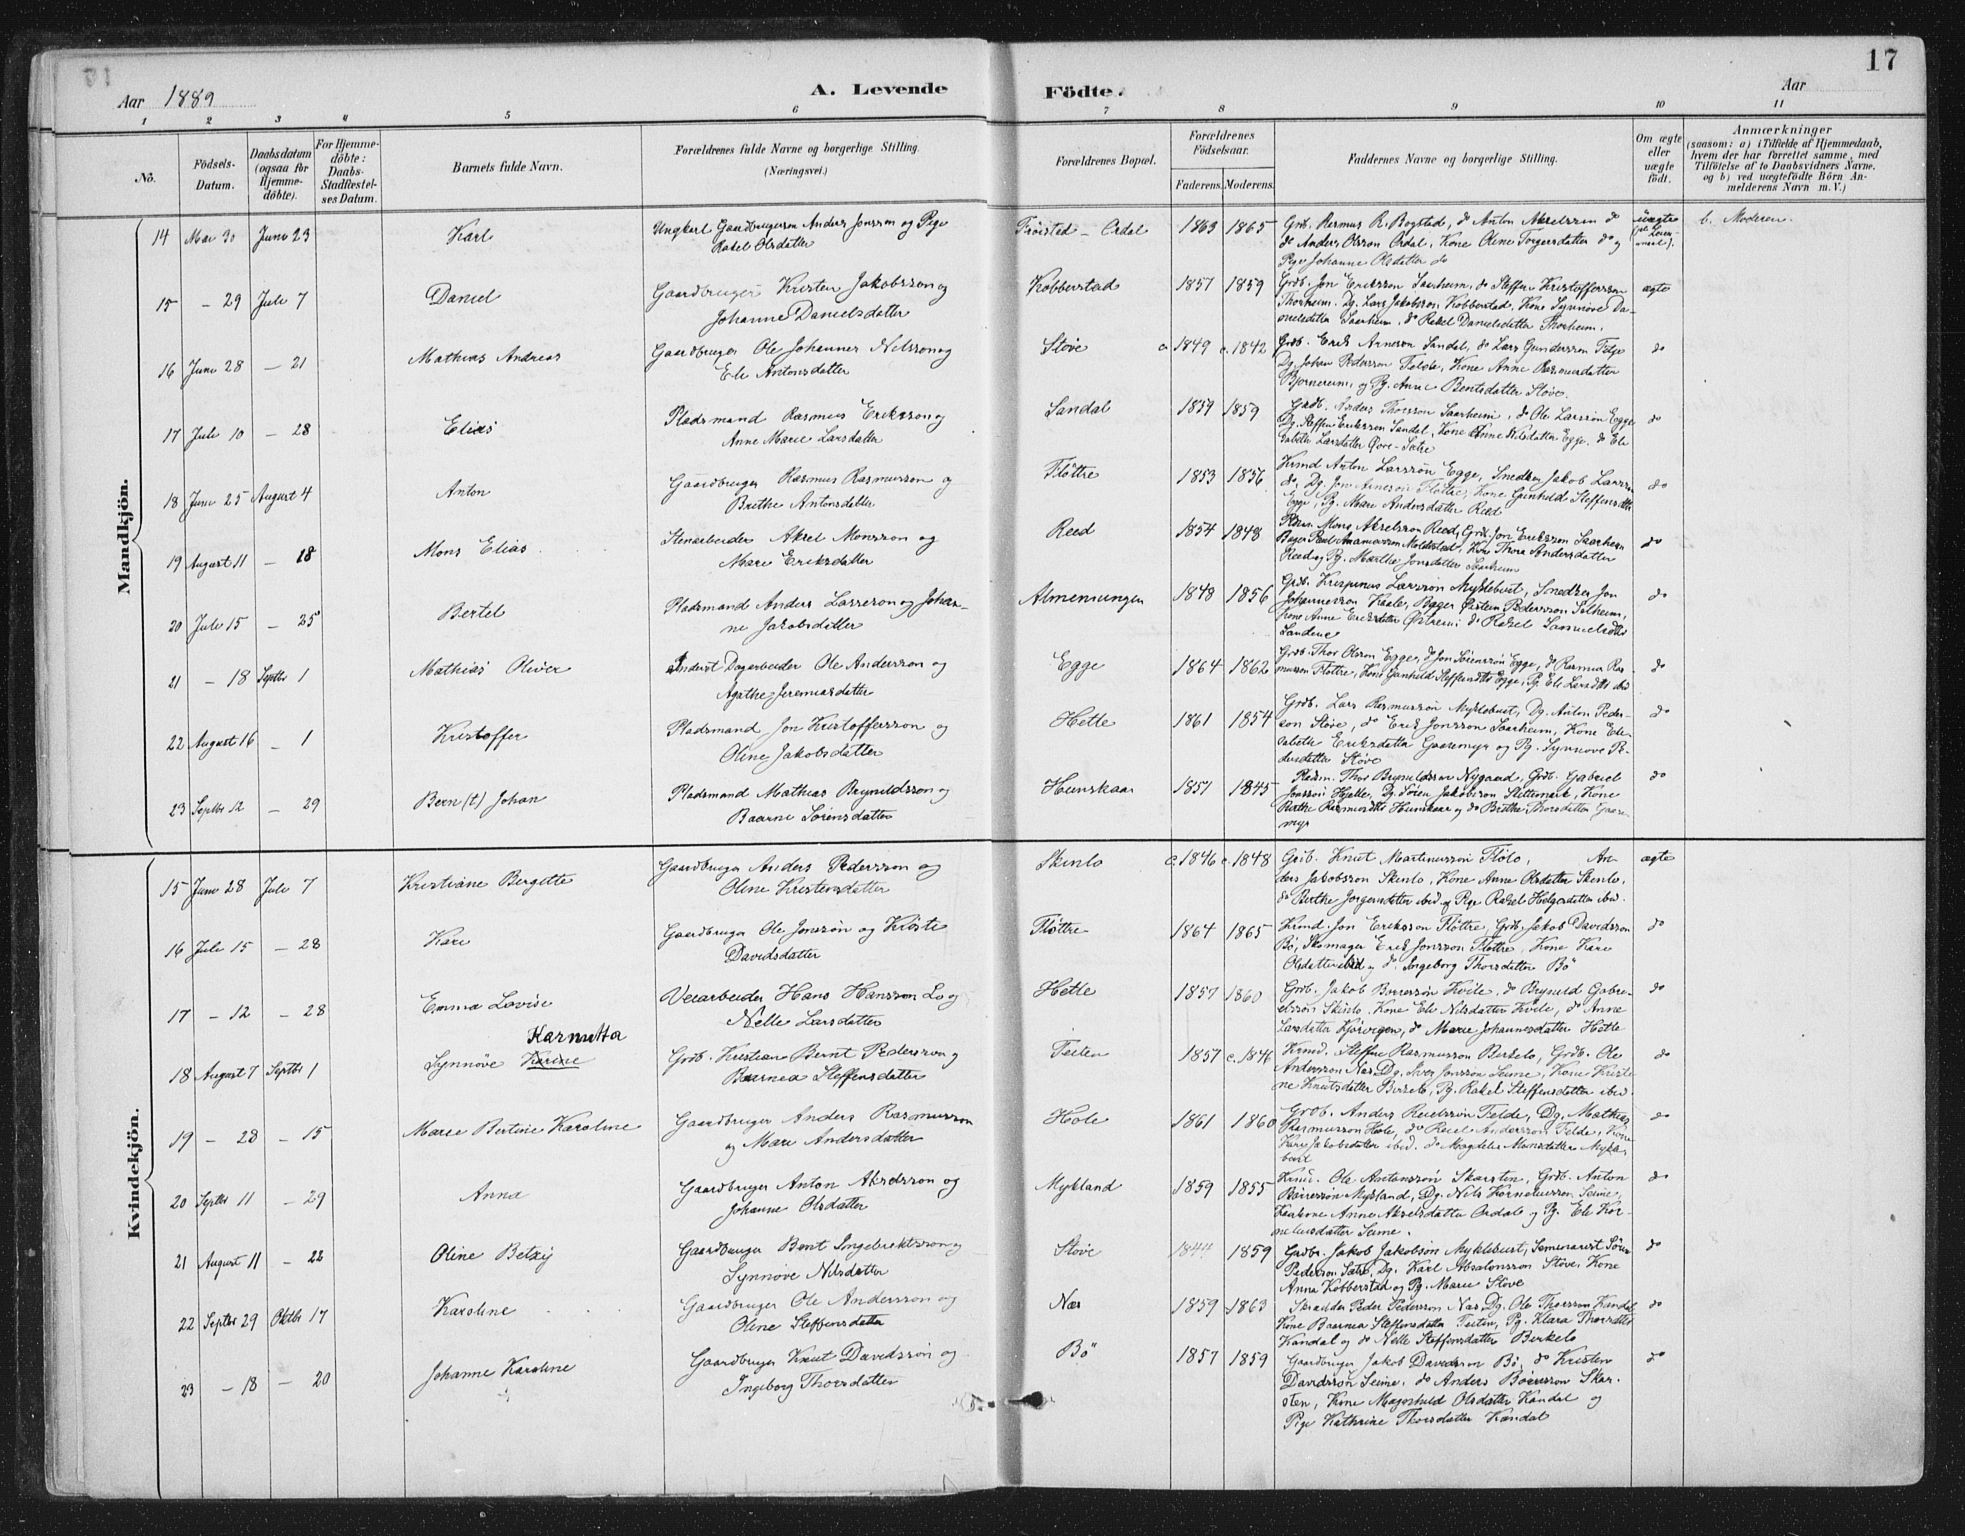 17
Aar 1889
A. Levende
Födte.
Aar
1 2 3 4 5 6 7 8 9 10 11
No.
Födsels-
Datum.
Daabsdatum
(ogsaa for
Hjemme-
döbte).
For Hjemme-
döbte:
Daabs-
Stadfæstel-
ses Datum.
Barnets fulde Navn.
Forældrenes fulde Navne og borgerlige Stilling.
(Næringsvei.)
Forældrenes Bopæl.
Forældrenes
Födselsaar.
Faderens. Moderens.
Faddernes Navne og borgerlige Stilling.
Om ægte
eller
uægte
födt.
Anmærkninger
(saasom: a) i Tilfælde af Hjemmedaab,
hvem der har forrettet samme, med
Tilföielse af to Daabsvidners Navne,
og b) ved uægtefödte Börn An-
melderens Navn m. V.)
Mandkjön.
14 Mai 30 Juni 23 Karl
Ungkarl Gaardbrugerson Anders Jonsson og Pige
Rakel Olsdatter
Ordal 1863 1865
Grb. Rasmus R. Bogstad, do Anton Akselsson do
do Anders Olsson Ordal, Kone Oline Torgersdatter do og
Pige Johanne Olsdatter do
uægte
b. Moderen.
15 - 29 Juli 7 Daniel
Gaardbruger Kristen Jakobsson og
Johanne Danielsdatter
Kobberstad 1857 1859
Grdb. Jon Eriksson Saarheim, do Steffen Kristoffersson
Thorheim, Dg. Lars Jakobsson Kobberstad, Kone Synnöve Da-
nielsdatter Saarheim, do Rakel Danielsdatter Thorheim.
ægte
16 Juni 28 - 21 Mathias Andreas
Gaardbruger Ole Johannes Nilsson og
Eli Antonsdatter
Støve c. 1849 c. 1842
Grdb. Erik Arneson Sandal, do Lars Gundersson Felge
Dg. Johan Pedersson Felde, Kone Anne Rasmusdatter
Bjørnereim, og Pg. Anne Bentsdatter Støve.
do
17 Juli 10 - 28 Elias
Pladsmand Rasmus Eriksson og
Anne Marie Larsdatter
Sandal 1859 1859
Grdb. Anders Thorsson Saarheim, do Ole Larssøn Egge
Dg. Steffen Eriksson Sandal, Kone Anne Nilsdatter Egge, do Eli-
sabeth Larsdatter Øvre-Sætre
do
18 Juni 25 August 4 Anton
Gaardbruger Rasmus Rasmusson og
Brithe Antonsdatter
Fløttre 1853 1856
Krmd Anton Larssøn Egge, Snedker Jakob Larsson
do, Dg. Jon Arneson Fløttre, Kone Gunhild Steffensdtr
Egge, Pg. Marie Andersdatter Reed
do
19 August 11 - 18 Mons Elias
Stenarbeider Aksel Monsson og
Marie Eriksdatter
Reed 1854 1848
Mons Akselsson Reed, Grdb. Jon Eriksson Saarheim
Moldestad, Kone Thora Andersdatter
Reed og Pg. Marthe Jonsdatter Saarheim
do
20 Juli 15 - 25 Bertel
Pladsmand Anders Larsson og Johan-
ne Jakobsdatter
Almenningen 1848 1856
Grdb. Krispinus Larsson Myklebust, Snedker Jon
Johannesson Kaale, Bager Øistein Pedersson Solheim,
Kone Anne Eriksdatter Østrem, do Rakel Samuelsdtr
Sandene
do
21 - 18 Septbr 1 Mathias Oliver
Inderst Dagarbeider Ole Andersson og
Agathe Jeremiasdatter
Egge 1864 1862
Grdb. Thor Olsson Egge, do Jon Sörenssön Egge, do Rasmus Ras-
mussen Fløttre, Kone Gunhild Steffensdtr Egge, Pg. Eli Larsdtr ibid
do
22 August 16 - 1 Kristoffer
Pladsmand Jon Kristoffersson og
Oline Jakobsdatter
Hetle 1861 1854
Grdb. Lars Rasmussøn Myklebust, Dg. Anton Peder-
son Støve, do Erik Jonsson Saarheim, Kone Eli-
sabeth Eriksdatter Gaaremyr og Pg. Synnøve Pe-
dersdatter Støve
do
23 Septbr 12 - 29 Bern(t) Johan
Pladsmand Mathias Brynildsson og
Baarne Sørensdatter
Hunskaar 1857 1845
Pladsm. Thor Brynildsson Nygaard, Grdb. Gabriel
Jonsson Hjelle, Dg. Søren Jakobsson Slettemark, Kone
Berthe Rasmusdtr Hunskaar og do Brithe Thorsdatter Gaare-
myr
do
Kvindekjön.
15 Juni 28 Juli 7 Kristiane Bergitte
Gaardbruger Anders Pedersson og
Oline Kristensdatter
Skinlo c. 1846 c. 1848
Grdb. Knut Martinussøn Fløto, An-
ders Jakobsson Skinlo, Kone Anne Olsdatter Skinlo,
do Berthe Jørgensdatter ibid og Pige Rakel Helgesdatter ibid.
ægte
16 Juli 15 - 28 Kari
Gaardbruger Ole Jonssøn og Kirsti
Davidsdatter
Fløttre 1864 1865
Krmd. Jon Eriksson Fløttre, Grdb. Jakob Davidsson
Bö, Skomager Erik Jonsson Fløttre, Kone Kari
Olsdatter ibid og do Ingeborg Thorsdatter Bö
do
17 - 12 - 28 Emma Lovise
Veiarbeider Hans Hansson Lo og
Nelle Larsdatter
Hetle 1857 1860
Grdb. Jakob Børresson Kvile, do Brynild Gabri-
elsson Skinlo, Kone Eli Nilsdatter Kvile, do Anne
Larsdatter Kjørvegen, do Marie Johannesdatter Hetle
do
18 August 7 Septbr 1 Synnøve Karine
Karnitta
Grdb. Kristian Bernt Pedersson og
Baarnea Steffensdatter
Teiten 1857 c. 1846
Krmd. Steffen Rasmusson Birkelo, Grdb. Ole
Andersson Nas, Dg. Iver Jonsson Seime, Kone Kristi-
ne Knutsdatter Birkelo, Pg. Rakel Steffensdatter ibid.
do
19 - 28 - 15 Marie Bertine Karoline
Gaardbruger Anders Rasmusson
og Mari Andersdatter
Hole 1861 1860
Grdb. Anders Reielssøn Felde, Dg. Mathias
Rasmusson Hole, do Reiel Andersson Felde, Kone
Kari Jakobsdatter ibid. do Magdeli Monsdatter Mykle-
bust
do
20 Septbr 11 - 29 Anna
Gaardbruger Anton Akselsson og
Johanne Olsdatter
Mykland 1859 1855
Krmd. Ole Antonssøn Skarsten, Grdb. Anton
Børressøn Mykland, Dg. Nils Korneliussøn Seime,
Kone Anne Akselsdatter Ordal og Pg. Eli Kor-
neliusdatter Seime.
do
21 August 11 - 22 Oline Betzy
Gaardbruger Bent Ingebriktsson og
Synnøve Nilsdatter
Støve 1844 1859
Grdbr. Jakob Jakobson Myklebust, Seminarist Sören
Pederson Sætre, Dg. Karl Absalonsson Støve, Kone
Anna Kobberstad og Pg. Marie Støve
do
22 Septbr 29 Oktbr 17 Karoline
Gaardbruger Ole Andersson og
Oline Steffensdatter
Nas 1859 1863
Skrædder Peder Pedersson Nas, Dg. Ole Thorsson Kandal
Kone Baarnea Steffensdatter Teiten, Pg. Klara Thorsdtr
Kandal og do Nelle Steffensdatter Birkelo
do
23 - 18 - 20 Johanne Karoline
Gaardbruger Knut Davidssøn og
Ingeborg Thorsdatter
Bö 1857 1859
Gaardbruger Jakob Davidsson Bö, do Kristen
Davidssøn Seime, do Anders Börresson Skar-
sten, Kone Magnhild Olsdatter Kandal og
Pige Kathrine Thorsdatter Kandal
do